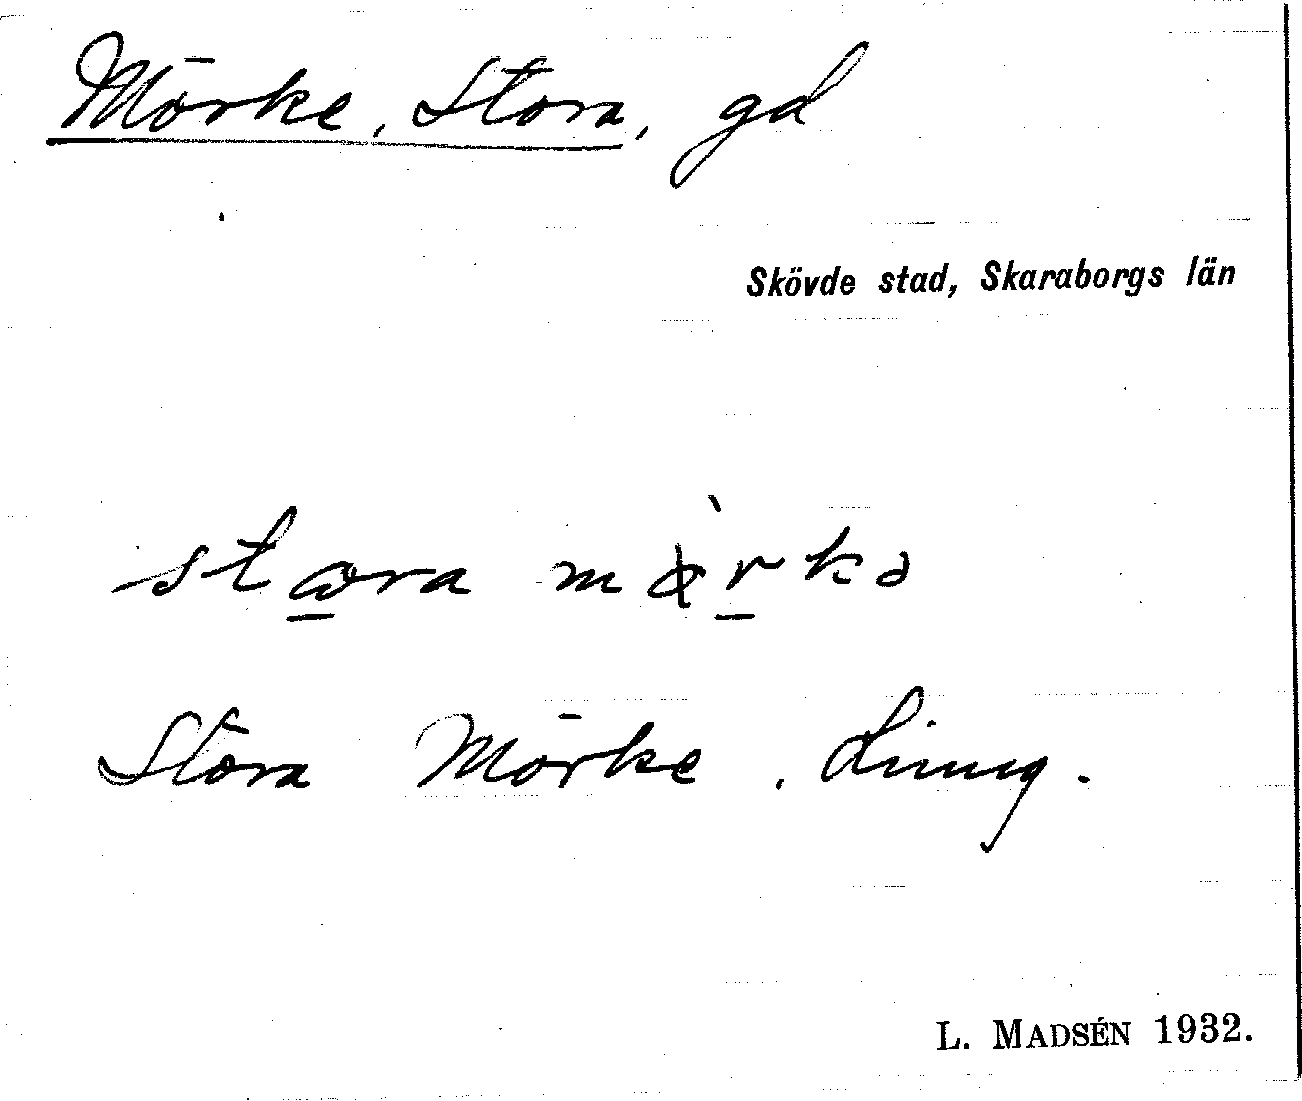 Mörke, Stora, gd
Skövde stad, Skaraborgs län
Stora Mörke,
L. MADSÉN 1932.